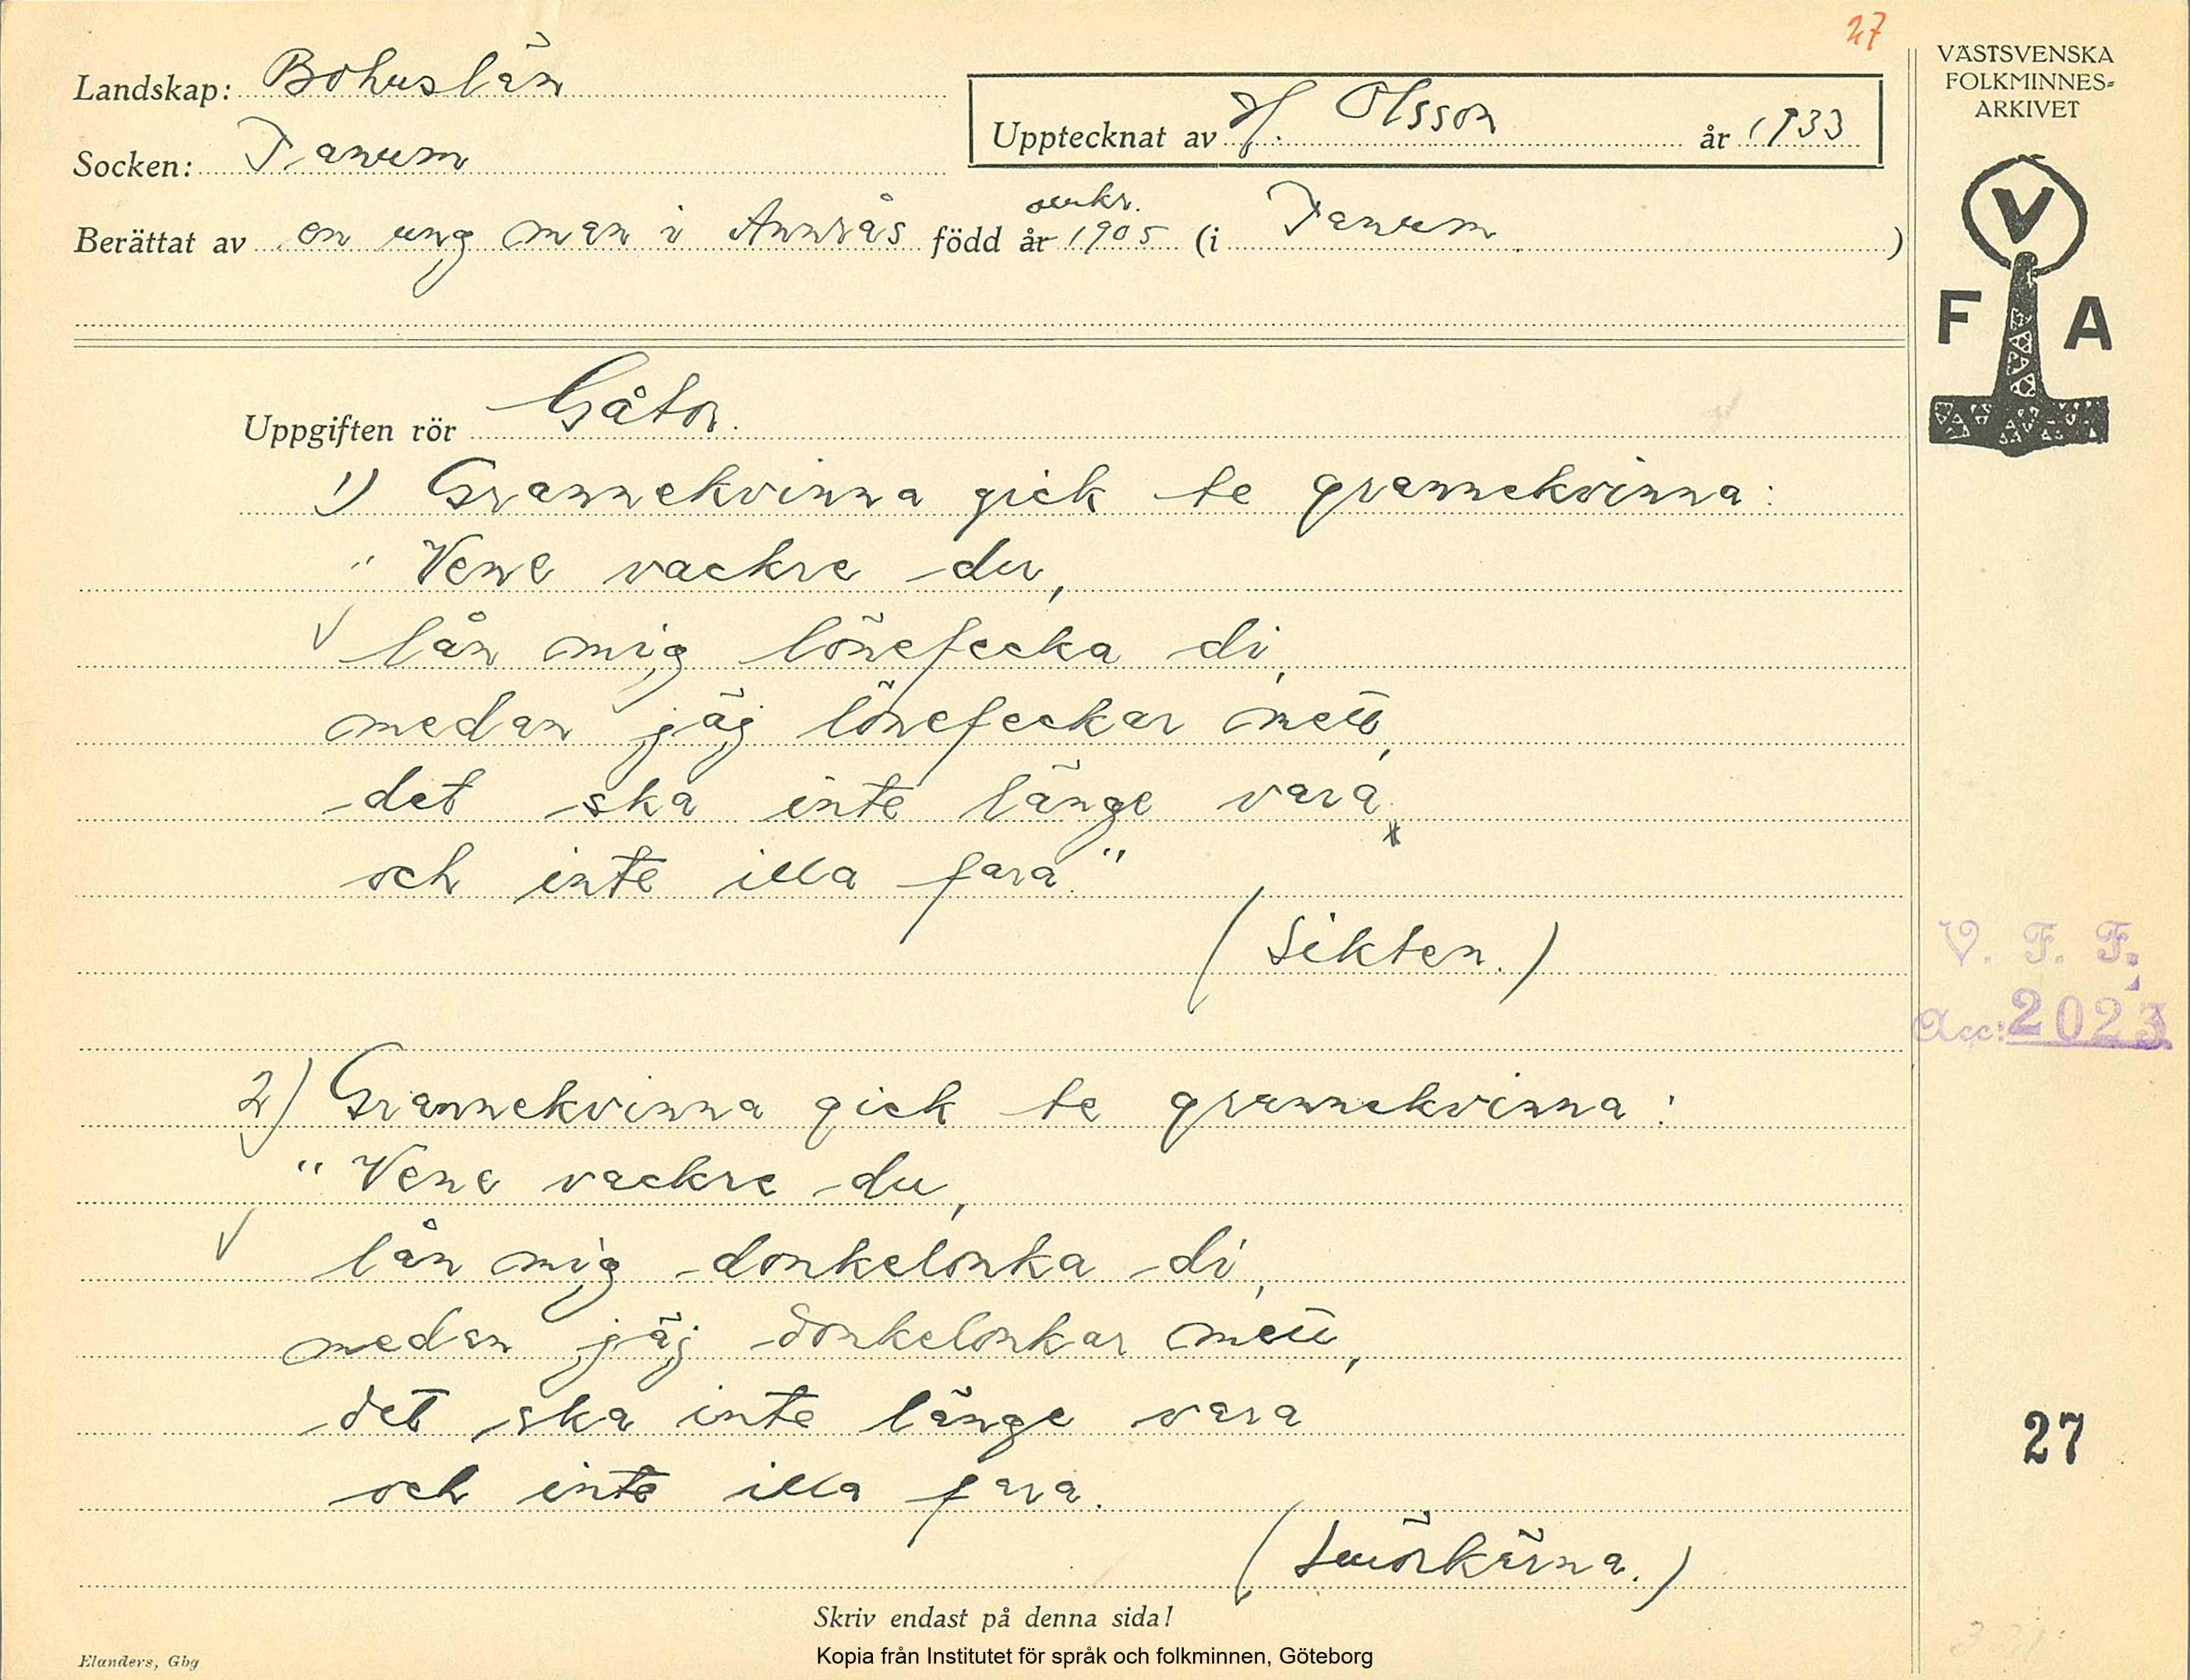 27
Landskap: Bohuslän
Socken: Tanum
Upptecknat av H. Olsson år 1933
Berättat av en ung man i Anrås född år omkr. 1905 (i Tanum.)
Uppgiften rör Gåtor.
1) Grannekvinna gick te grannekvinna:
"Vene vackre du,
√ lån mig lönefecka di,
medan jäj lönefeckar mett,
det ska inte länge vara
och inte illa fara."
(Sikten.)
2) Grannekvinna gick te grannekvinna:
"Vene vackre du,
√ lån mig donkelonka di,
medan jäj donkelonkar mett,
det ska inte länge vara
och inte illa fara.
(Smörkärna.)
Skriv endast på denna sida!
Kopia från Institutet för språk och folkminnen, Göteborg
Elanders, Gbg
VÄSTSVENSKA
FOLKMINNES=
ARKIVET
V
F A
V. F. F.
Acc: 2023
27